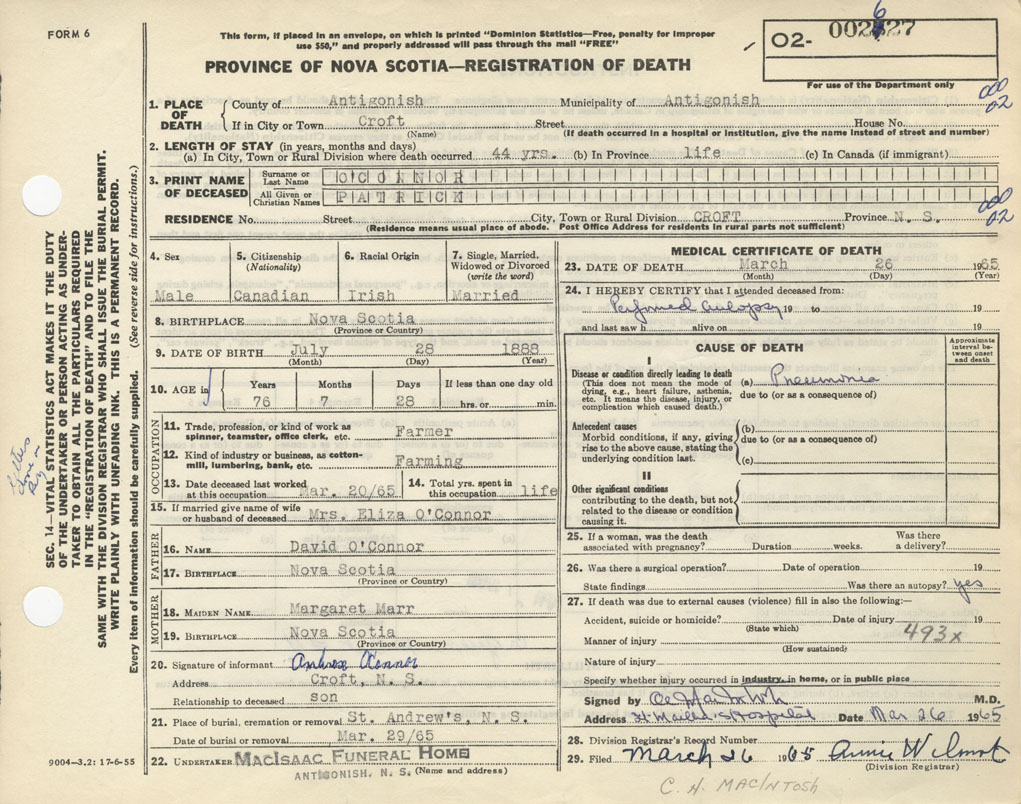 FORM 6
This form, if placed in an envelope, on which is printed "Dominion Statistics—Free, penalty for improper
use $50," and properly addressed will pass through the mail "FREE"
PROVINCE OF NOVA SCOTIA—REGISTRATION OF DEATH
02-
For use of the Department only
000
02
1. PLACE OF DEATH
County of Antigonish Municipality of Antigonish
If in City or Town Croft Street House No.
(Name) (If death occurred in a hospital or institution, give the name instead of street and number)
2. LENGTH OF STAY (in years, months and days)
(a) In City, Town or Rural Division where death occurred 44 yrs. (b) In Province life (c) In Canada (if immigrant)
3. PRINT NAME OF DECEASED
Surname or Last Name O'CONNOR
All Given or Christian Names PATRICK
000
02
RESIDENCE No. Street City, Town or Rural Division CROFT Province N. S.
(Residence means usual place of abode. Post Office Address for residents in rural parts not sufficient)
4. Sex 5. Citizenship (Nationality) 6. Racial Origin 7. Single, Married, Widowed or Divorced (write the word)
Male Canadian Irish Married
8. BIRTHPLACE Nova Scotia
(Province or Country)
9. DATE OF BIRTH July 28 1888
(Month) (Day) (Year)
10. AGE in Years Months Days If less than one day old
76 7 28 hrs. or min.
OCCUPATION
11. Trade, profession, or kind of work as spinner, teamster, office clerk, etc. Farmer
12. Kind of industry or business, as cotton-mill, lumbering, bank, etc. Farming
13. Date deceased last worked at this occupation Mar. 20/65 14. Total yrs. spent in this occupation life
15. If married give name of wife or husband of deceased Mrs. Eliza O'Connor
FATHER
16. NAME David O'Connor
17. BIRTHPLACE Nova Scotia
(Province or Country)
MOTHER
18. MAIDEN NAME Margaret Marr
19. BIRTHPLACE Nova Scotia
(Province or Country)
20. Signature of informant Ambrose O'Connor
Address Croft, N. S.
Relationship to deceased son
21. Place of burial, cremation or removal St. Andrew's, N. S.
Date of burial or removal Mar. 29/65
22. UNDERTAKER MACISAAC FUNERAL HOME
ANTIGONISH, N. S. (Name and address)
MEDICAL CERTIFICATE OF DEATH
23. DATE OF DEATH March 26 1965
(Month) (Day) (Year)
24. I HEREBY CERTIFY that I attended deceased from:
Performed autopsy 19 to 19
and last saw h alive on 19
CAUSE OF DEATH
Approximate interval between onset and death
I
Disease or condition directly leading to death
(This does not mean the mode of dying, e.g., heart failure, asthenia, etc. It means the disease, injury, or complication which caused death.)
(a) Pneumonia
due to (or as a consequence of)
Antecedent causes
Morbid conditions, if any, giving rise to the above cause, stating the underlying condition last.
(b)
due to (or as a consequence of)
(c)
II
Other significant conditions
contributing to the death, but not related to the disease or condition causing it.
25. If a woman, was the death associated with pregnancy? Duration weeks. Was there a delivery?
26. Was there a surgical operation? Date of operation 19
State findings Was there an autopsy? yes
27. If death was due to external causes (violence) fill in also the following:—
Accident, suicide or homicide? Date of injury 19
(State which)
493x
Manner of injury
(How sustained)
Nature of injury
Specify whether injury occurred in industry, in home, or in public place
Signed by M.D.
Address Date Mar 26 1965
28. Division Registrar's Record Number
29. Filed March 26 1965 Annie Wilmot
(Division Registrar)
C. H. MACINTOSH
SEC. 14—VITAL STATISTICS ACT MAKES IT THE DUTY
OF THE UNDERTAKER OR PERSON ACTING AS UNDER-
TAKER TO OBTAIN ALL THE PARTICULARS REQUIRED
IN THE "REGISTRATION OF DEATH" AND TO FILE THE
SAME WITH THE DIVISION REGISTRAR WHO SHALL ISSUE THE BURIAL PERMIT.
WRITE PLAINLY WITH UNFADING INK. THIS IS A PERMANENT RECORD.
Every item of information should be carefully supplied. (See reverse side for instructions.)
9004—3.2: 17-6-55